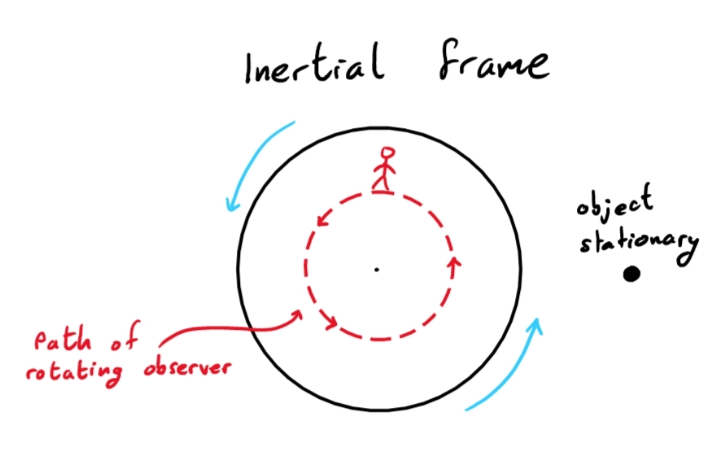 Inertial frame
object
stationary
Path of
rotating observer